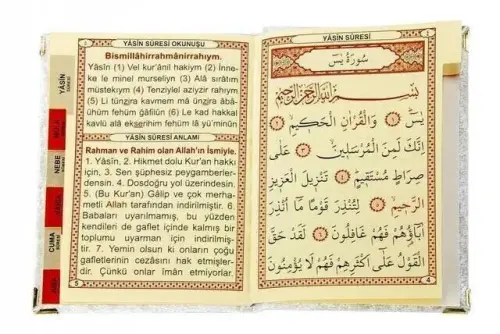 YÂSİN SÛRESİ OKUNUŞU
Bismillâhirrahmânirrahıym.
Yâsîn (1) Vel kur'ânil hakiym (2) İnne-
ke le minel murseliyn (3) Alâ sırâtım
müstekıym (4) Tenziylel aziyzir rahıym
(5) Li tünẕira kavmem mâ ünẕira âbâ-
ühüm fehüm ğâfilûn (6) Le kad hakkal
kavlü alâ ekserihim fehüm lâ yü'minûn
YÂSİN SÛRESİ ANLAMI
Rahman ve Rahim olan Allah'ın İsmiyle.
1. Yâsîn, 2. Hikmet dolu Kur'an hakkı
için, 3. Sen şüphesiz peygamberler-
densin. 4. Dosdoğru yol üzerindesin.
5. (Bu Kur'an) Gâlip ve çok merha-
metli Allah tarafından indirilmiştir. 6.
Babaları uyarılmamış, bu yüzden
kendileri de gaflet içinde kalmış bir
toplumu uyarman için indirilmiş-
tir. 7. Yemin olsun ki onların çoğu
gafletlerinin cezasını hak etmişler-
dir. Çünkü onlar îmân etmiyorlar.
5
YÂSİN
NEBE
CUMA
YÂSİN SÛRESİ
سُورَةُ يٰسٓ
بِسْمِ اللّٰهِ الرَّحْمٰنِ الرَّحِيمِ
يٰسٓ ﴿١﴾ وَالْقُرْاٰنِ الْحَكِيمِ ﴿٢﴾
اِنَّكَ لَمِنَ الْمُرْسَلِينَ ﴿٣﴾ عَلٰى
صِرَاطٍ مُسْتَقِيمٍ ﴿٤﴾ تَنْزِيلَ الْعَزِيزِ
الرَّحِيمِ ﴿٥﴾ لِتُنْذِرَ قَوْمًا مَٓا اُنْذِرَ
اٰبَٓاؤُهُمْ فَهُمْ غَافِلُونَ ﴿٦﴾ لَقَدْ حَقَّ
الْقَوْلُ عَلٰٓى اَكْثَرِهِمْ فَهُمْ لَا يُؤْمِنُونَ
4